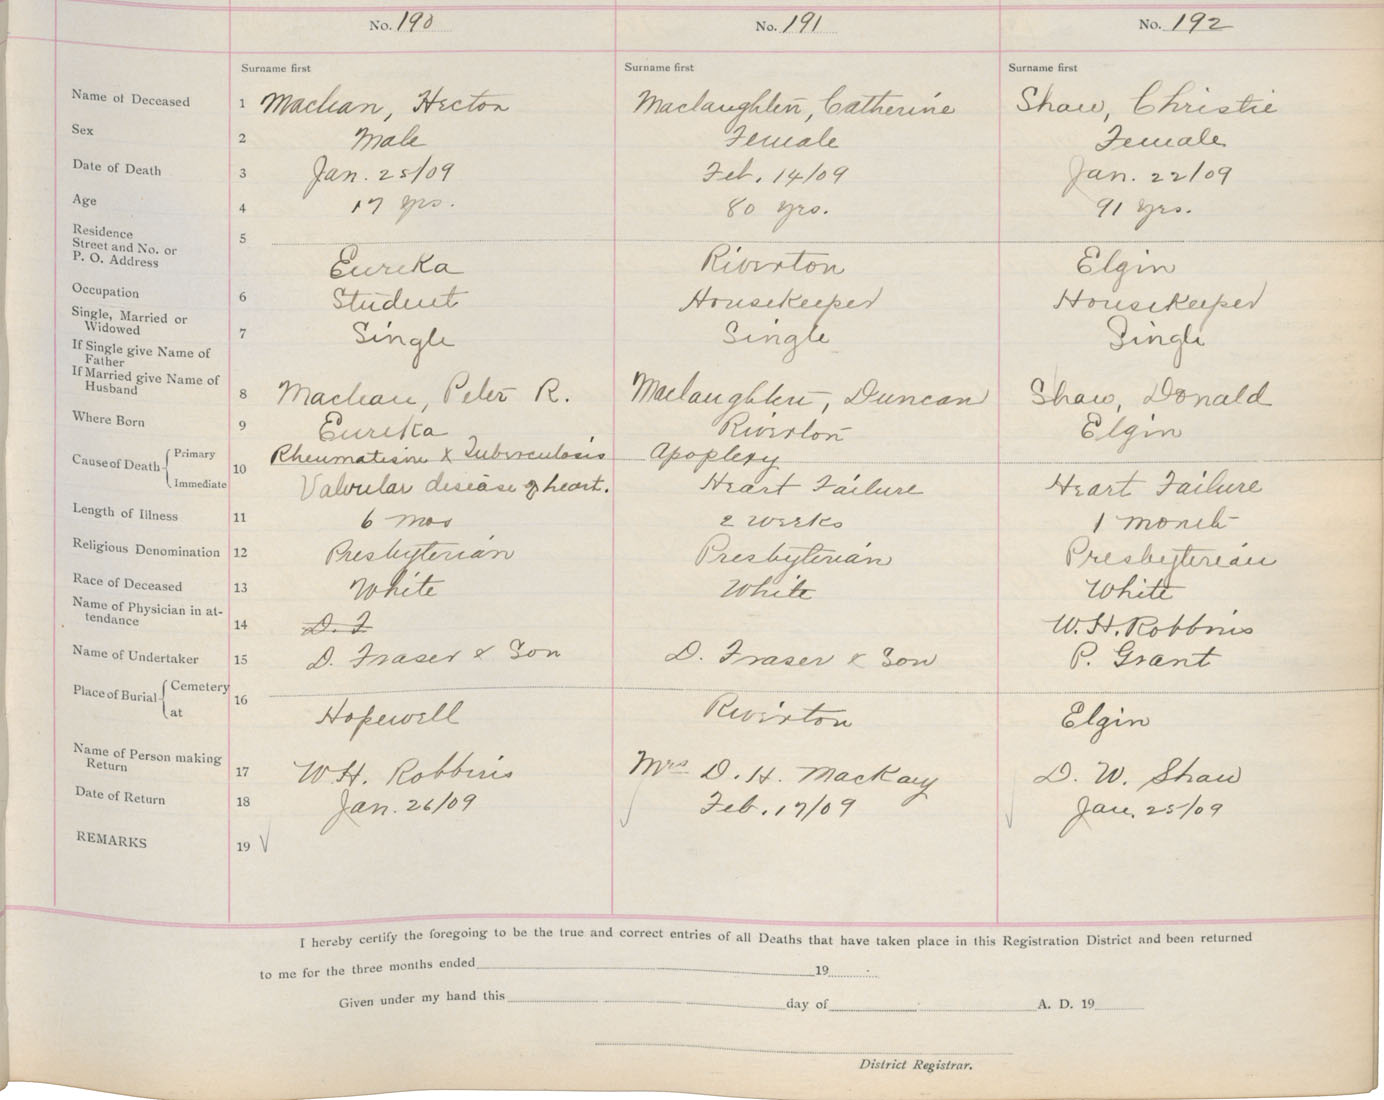 No. 190 No. 191 No. 192
Surname first Surname first Surname first
Name of Deceased 1 Maclean, Hector Maclaughlin, Catherine Shaw, Christie
Sex 2 Male Female Female
Date of Death 3 Jan. 25/09 Feb. 14/09 Jan. 22/09
Age 4 17 yrs. 80 yrs. 91 yrs.
Residence
Street and No. or 5
P. O. Address Eureka Riverton Elgin
Occupation 6 Student Housekeeper Housekeeper
Single, Married or
Widowed 7 Single Single Single
If Single give Name of
Father
If Married give Name of
Husband 8 Maclean, Peter R. Maclaughlin, Duncan Shaw, Donald
Where Born 9 Eureka Riverton Elgin
Cause of Death Primary Rheumatism & Tuberculosis Apoplexy
10
Immediate Valvular disease of heart. Heart Failure Heart Failure
Length of Illness 11 6 mos 2 weeks 1 month
Religious Denomination 12 Presbyterian Presbyterian Presbyterian
Race of Deceased 13 White White White
Name of Physician in at-
tendance 14 D. F W. H. Robbins
Name of Undertaker 15 D. Fraser & Son D. Fraser & Son P. Grant
Place of Burial Cemetery
16
at Hopewell Riverton Elgin
Name of Person making
Return 17 W H. Robbins Mrs D. H. MacKay D. W. Shaw
Date of Return 18 Jan. 26/09 Feb. 17/09 Jan. 25/09
REMARKS 19
I hereby certify the foregoing to be the true and correct entries of all Deaths that have taken place in this Registration District and been returned
to me for the three months ended 19
Given under my hand this day of A. D. 19
District Registrar.